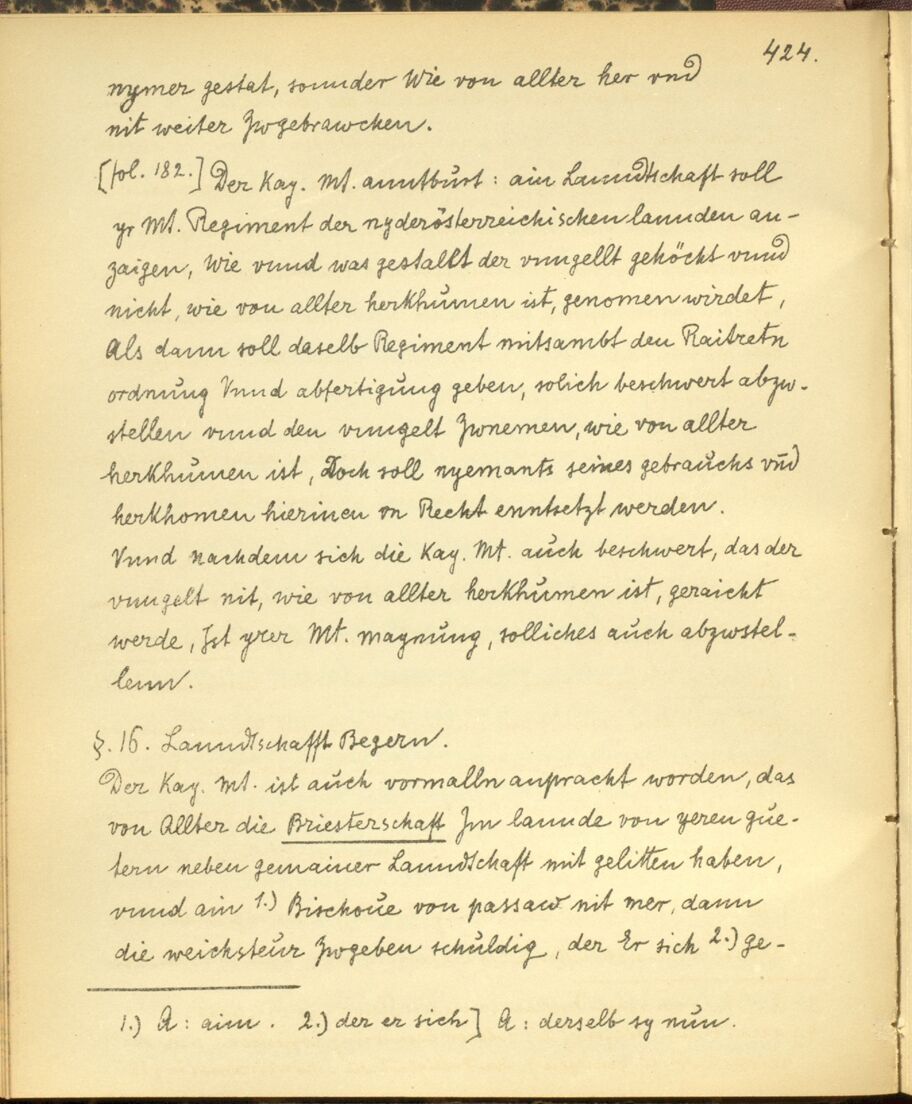 424.
nymer gestat, sonnder Wie von allter her vnd
nit weiter Zwgebrawchen.
[fol. 182.] Der Kay. Mt. anntburt: ain Lanndtschaft soll
yr Mt. Regiment der nyderösterreichischen lannden an-
zaigen, Wie vnnd was gestallt der vnngellt gehöcht vnnd
nicht, wie von allter herkhumen ist, genomen wirdet,
Als dann soll daselb Regiment mitsambt den Raitretn
ordnung Vnnd abfertigung geben, solich beschwert abzw-
stellen vnnd den vnngelt Zwnemen, wie von allter
herkhumen ist, Doch soll nyemants seines gebrauchs vnd
herkhomen hierinen on Recht enntsetzt werden.
Vnnd nachdem sich die Kay. Mt. auch beschwert, das der
vnngelt nit, wie von allter herkhumen ist, geraicht
werde, Ist yrer Mt. maynung, solliches auch abzwstel-
lenn.
§. 16. Lanndtschafft Begern.
Der Kay. Mt. ist auch vormalln anpracht worden, das
von Allter die Briesterschaft Im lannde von yeren gue-
tern neben gemainer Lanndtschaft mit gelitten haben,
vnnd ain 1.) Bischoue von passaw nit mer, dann
die weichsteur Zwgeben schuldig, der Er sich 2.) ge-
1.) A: aim. 2.) der er sich] A: derselb sy nun.